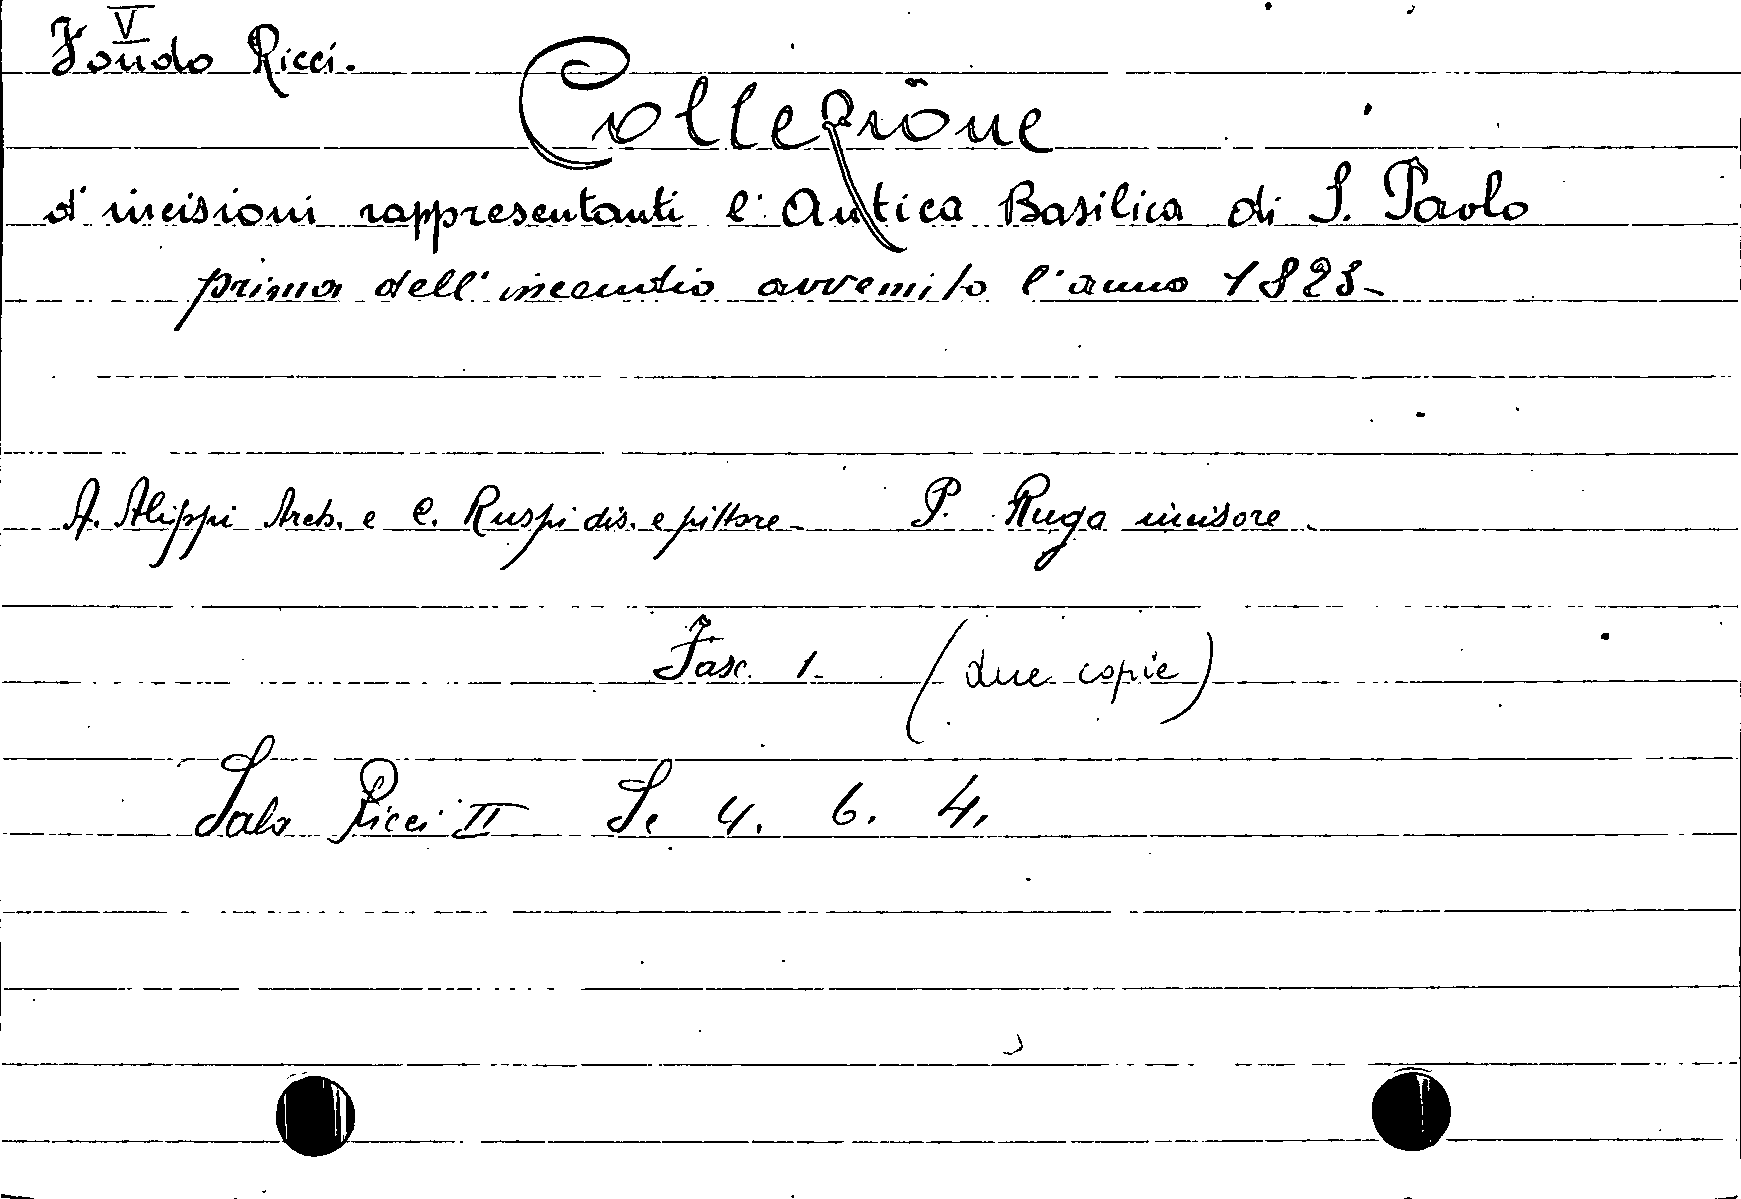 V
Fondo Ricci.
Collezione
d'incisioni rappresentanti l'Antica Basilica di S. Paolo
prima dell'incendio avvenuto l'anno 1823-
A. Alippi Arch. e C. Ruspi dis. e pittore - P. Ruga incisore.
Fasc. 1. (due copie)
Sala Ricci II S. 4. 6. 4.